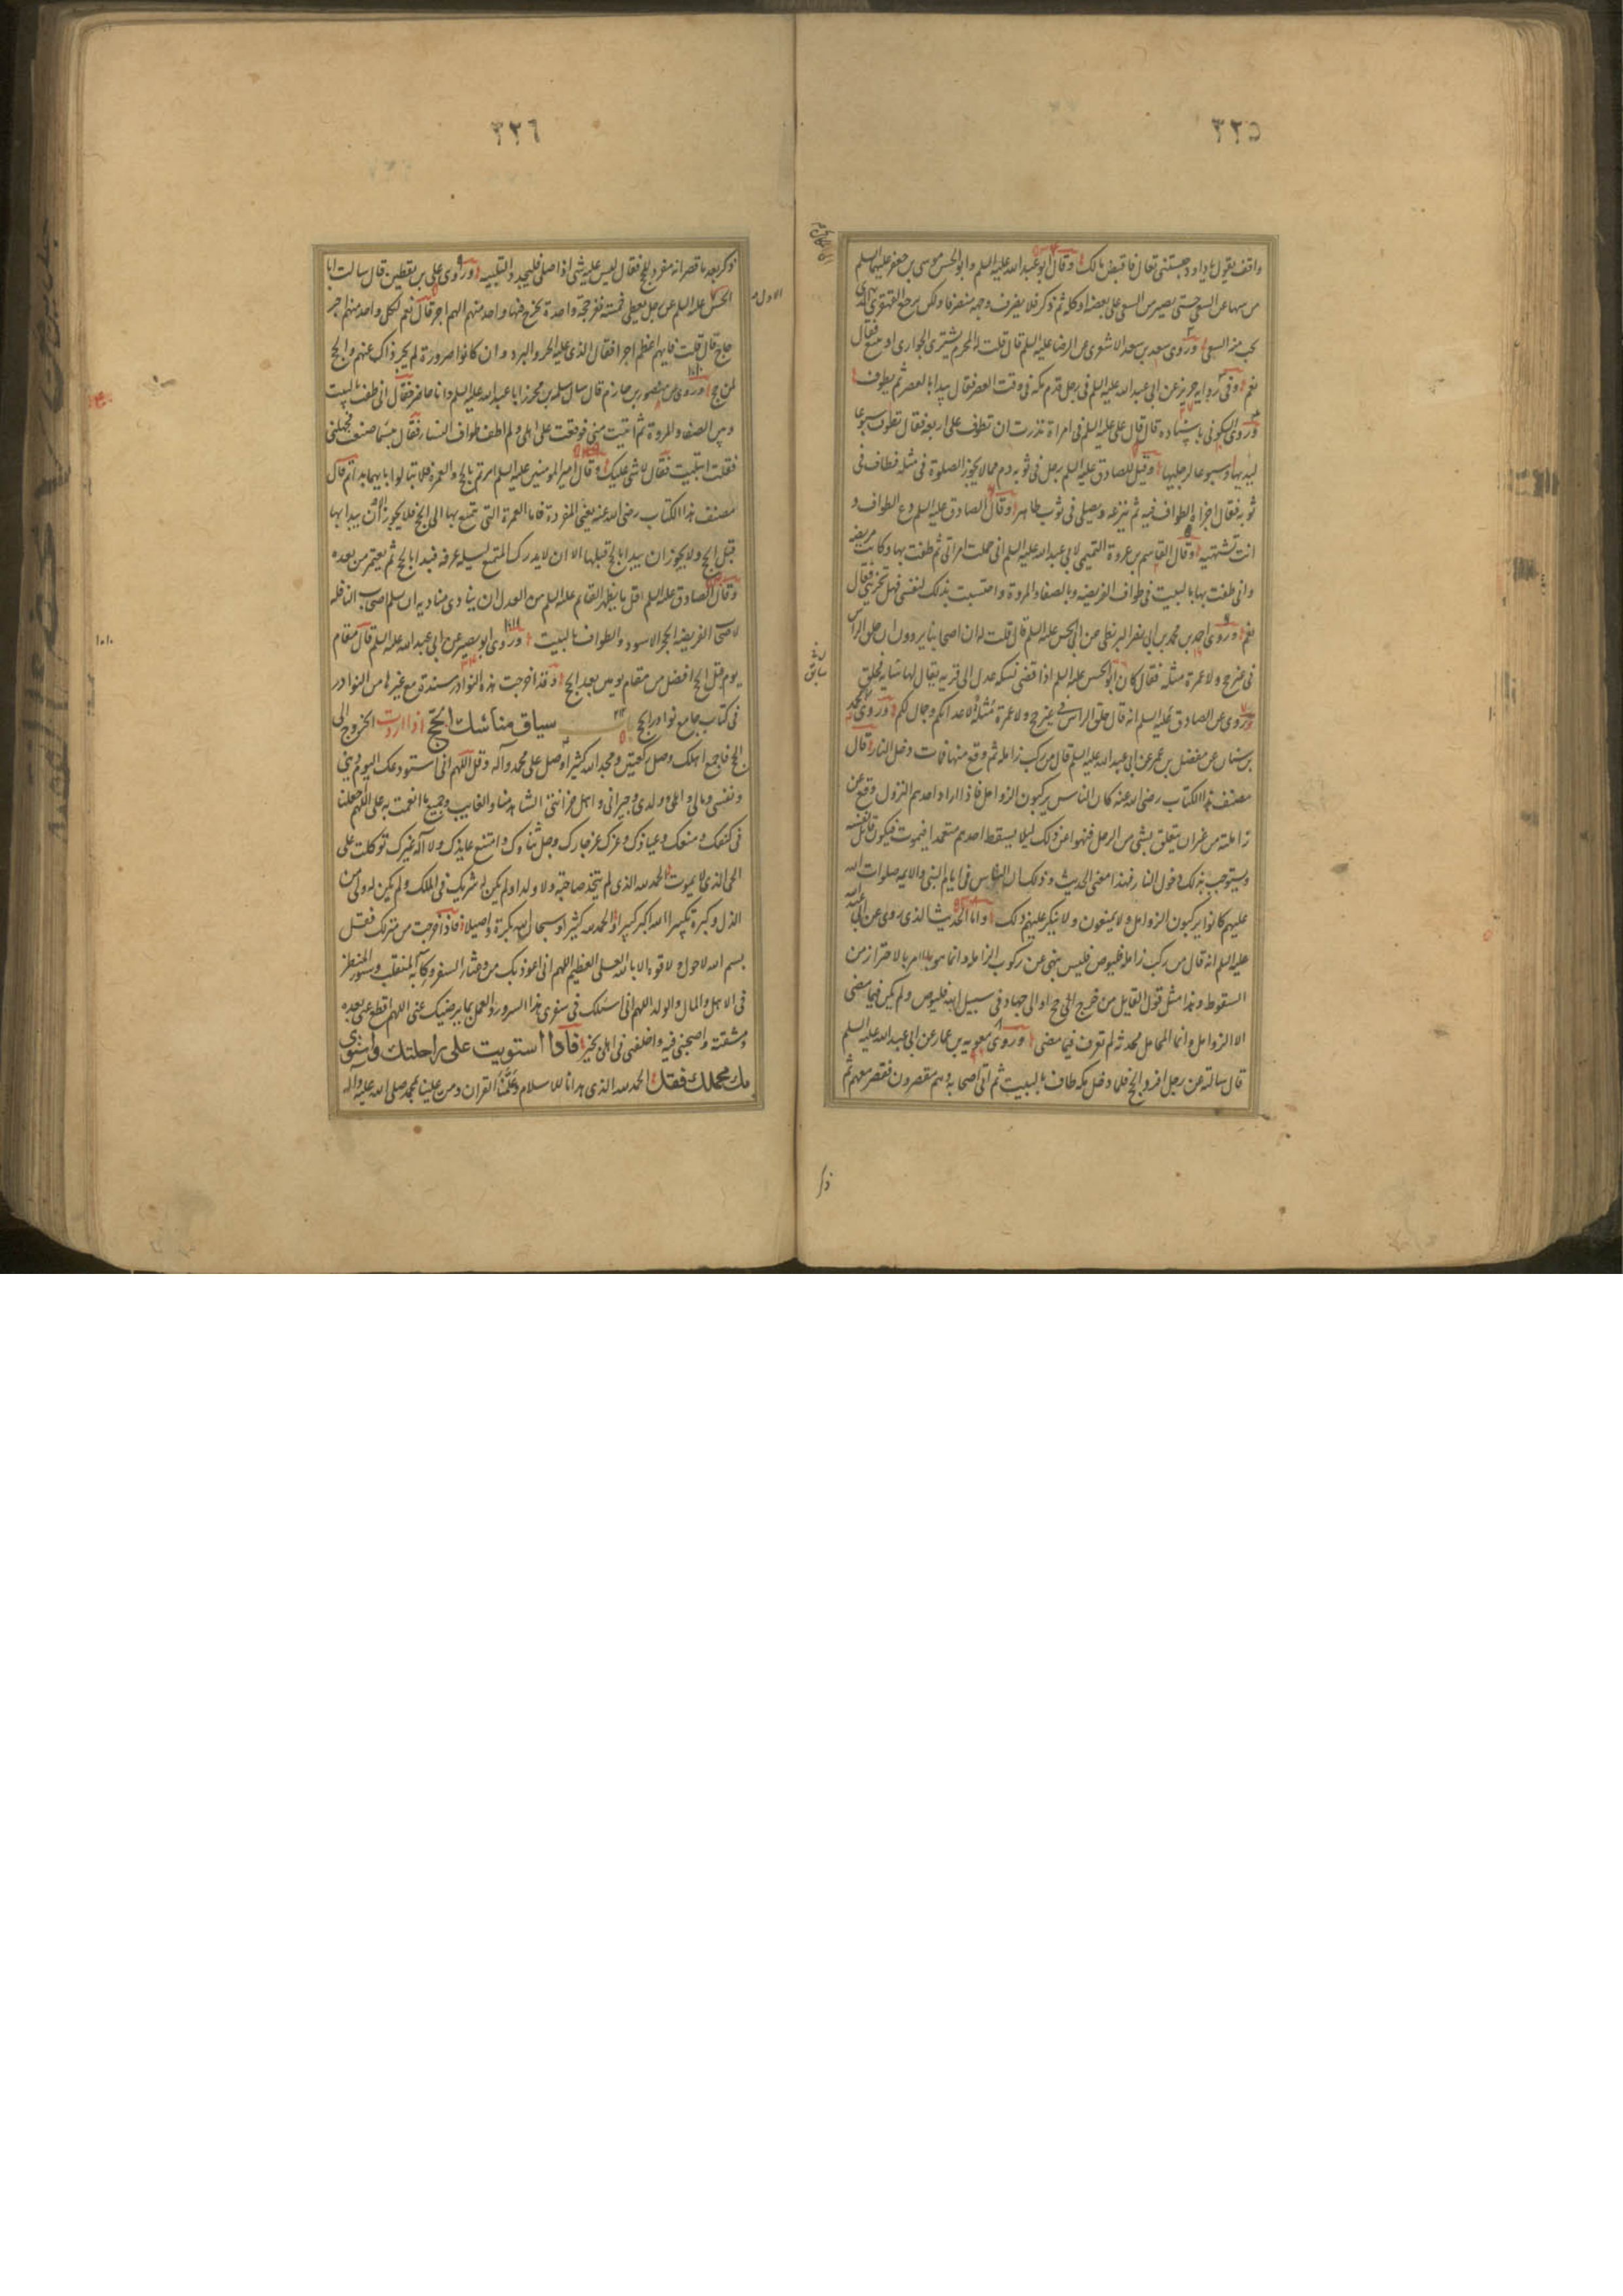 ٣٢٥
واقف يقول يا داود حبستنى تعال فاقبض مالك وقال ابو عبد الله عليه السلم وابو الحسن موسى بن جعفر عليهما السلم
من سها عن السعى حتى يصير من السعى على بعضه او كله ثم ذكر فلا يصرف وجهه منصرفا ولكن يرجع القهقرى الى
يجب منه السعى وروى سعد بن سعد الاشعرى عن الرضا عليه السلم قال قلت له المحرم يشترى الجوارى او يبيع فقال
نعم وفى رواية حريز عن ابى عبد الله عليه السلم فى رجل قدم مكة فى وقت العصر فقال يبدا بالعصر ثم يطوف
وروى السكونى باسناده قال قال على عليه السلم فى امراة نذرت ان تطوف على اربعة فقال تطوف سبوعا
ليديها وسبوعا لرجليها وقيل للصادق عليه السلم رجل فى ثوبه دم مما لا يجوز الصلوة فى مثله فطاف فى
ثوبه فقال اجزاه الطواف فيه ثم ينزعه ويصلى فى ثوب طاهر وقال الصادق عليه السلم دع الطواف و
انت تشتهيه وقال القاسم بن عروة التميمى لابى عبد الله عليه السلم انى حملت امراتى ثم طفت بها وكانت مريضه
وانى طفت بها بالبيت فى طواف الفريضه وبالصفا والمروة واحتسبت بذلك لنفسى فهل تجزينى فقال
نعم وروى احمد بن محمد بن ابى نصر البزنطى عن ابى الحسن عليه السلم قال قلت له ان اصحابنا يروون ان حلق الراس
فى غير حج ولا عمرة مثله فقال كان ابو الحسن عليه السلم اذا قضى نسكه عدل الى قرية يقال لها سايه فحلق
وروى عن الصادق عليه السلم انه قال حلق الراس فى غير حج ولا عمرة مثلة لاعدائكم وجمال لكم وروى محمد
بن سنان عن مفضل بن عمر عن ابى عبد الله عليه السلم قال من ركب زاملة ثم وقع منها فمات دخل النار قال
مصنف هذا الكتاب رضى الله عنه كان الناس يركبون الزوامل فاذا اراد احدهم النزول وقع عن
زاملته من غير ان يتعلق بشى من الرحل فنهوا عن ذلك ليلا يسقط احدهم متعمدا فيموت فيكون قاتل نفسه
ويستوجب بذلك دخول النار فهذا معنى الحديث وذلك ان الناس فى ايام النبى والايمه صلوات الله
عليهم كانوا يركبون الزوامل ولا يمنعون ولا ينكر عليهم ذلك واما الحديث الذى روى عن ابى عبد الله
عليه السلم انه قال من ركب زاملة فليوص فليس بنهى عن ركوب الزاملة وانما هو الامر بالاحتراز من
السقوط وهذا مثل قول القايل من خرج الى حج او الى جهاد فى سبيل الله فليوص ولم يكن فيما مضى
الا الزوامل وانما المحامل محدثة لم تعرف فيما مضى وروى معويه بن عمار عن ابى عبد الله عليه السلم
قال سالته عن رجل افرد الحج فلما دخل مكة طاف بالبيت ثم اتى اصحابه وهم يقصرون فقصر معهم ثم
ذكر
٣٢٦
ذكر بعد ما قصر انه مفرد للحج فقال ليس عليه شى اذا صلى فليجدد التلبيه وروى على بن يقطين قال سالت ابا
الحسن عليه السلم عن رجل يعطى خمسة نفر حجة واحدة يخرج فيها واحد منهم الهم اجر قال نعم لكل واحد منهم اجر
الاول
حاج قال قلت فايهم اعظم اجرا فقال الذى عليه الحر والبرد وان كانوا صرورة لم يجز ذاك عنهم والحج
لمن حج وروى عن منصور بن حازم قال سال سلمه بن محرز ابا عبد الله عليه السلم وانا حاضر فقال انى طفت بالبيت
وبين الصفا والمروة ثم اتيت منى فوقعت على اهلى ولم اطف طواف النساء فقال بئسما صنعت فجهلنى
فقلت ابتليت فقال لا شى عليك وقال امير المومنين عليه السلم امرتم بالحج والعمرة فلا تبالوا بايهما بداتم قال
مصنف هذا الكتاب رضى الله عنه يعنى المفردة فاما العمرة التى تمتع بها الى الحج فلا يجوز الا ان يبدا بها
قبل الحج ولا يجوز ان يبدا بالحج قبلها الا ان لا يدرك المتمتع ليلة عرفه فيبدا بالحج ثم يعتمر من بعده
وقال الصادق عليه السلم اول ما يظهر القائم عليه السلم من العدل ان ينادى مناديه ان يسلم اصحاب النافله
لاصحاب الفريضه الحجر الاسود والطواف بالبيت وروى ابو بصير عن ابى عبد الله عليه السلم قال مقام
يوم قبل الحج افضل من مقام يومين بعد الحج وقد اخرجت هذه النوادر مسندة مع غيرها من النوادر
فى كتاب جامع نوادر الحج باب سياق مناسك الحج اذا اردت الخروج الى
الحج فاجمع اهلك وصل ركعتين ومجد الله كثيرا وصل على محمد وآله وقل اللهم انى استودعك اليوم دينى
ونفسى ومالى واهلى وولدى وجيرانى واهل حزانتى الشاهد منا والغايب وجميع ما انعمت به على اللهم اجعلنا
فى كنفك ومنعك وعياذك وعزك عز جارك وجل ثناؤك وامتنع عايذك ولا اله غيرك توكلت على
الحى الذى لا يموت الحمد لله الذى لم يتخذ صاحبة ولا ولدا ولم يكن له شريك فى الملك ولم يكن له ولى من
الذل وكبره تكبيرا الله اكبر كبيرا والحمد لله كثيرا وسبحان الله بكرة واصيلا فاذا خرجت من منزلك فقل
بسم الله لا حول ولا قوة الا بالله العلى العظيم اللهم انى اعوذ بك من وعثاء السفر وكآبة المنقلب وسوء المنظر
فى الاهل والمال والولد اللهم انى اسئلك فى سفرى هذا السرور والعمل بما يرضيك عنى اللهم اقطع عنى بعده
ومشقته واصحبنى فيه واخلفنى فى اهلى بخير فاذا استويت على راحلتك واستوى
بك محملك فقل الحمد لله الذى هدانا للاسلام وعلمنا القران ومن علينا بمحمد صلى الله عليه وآله